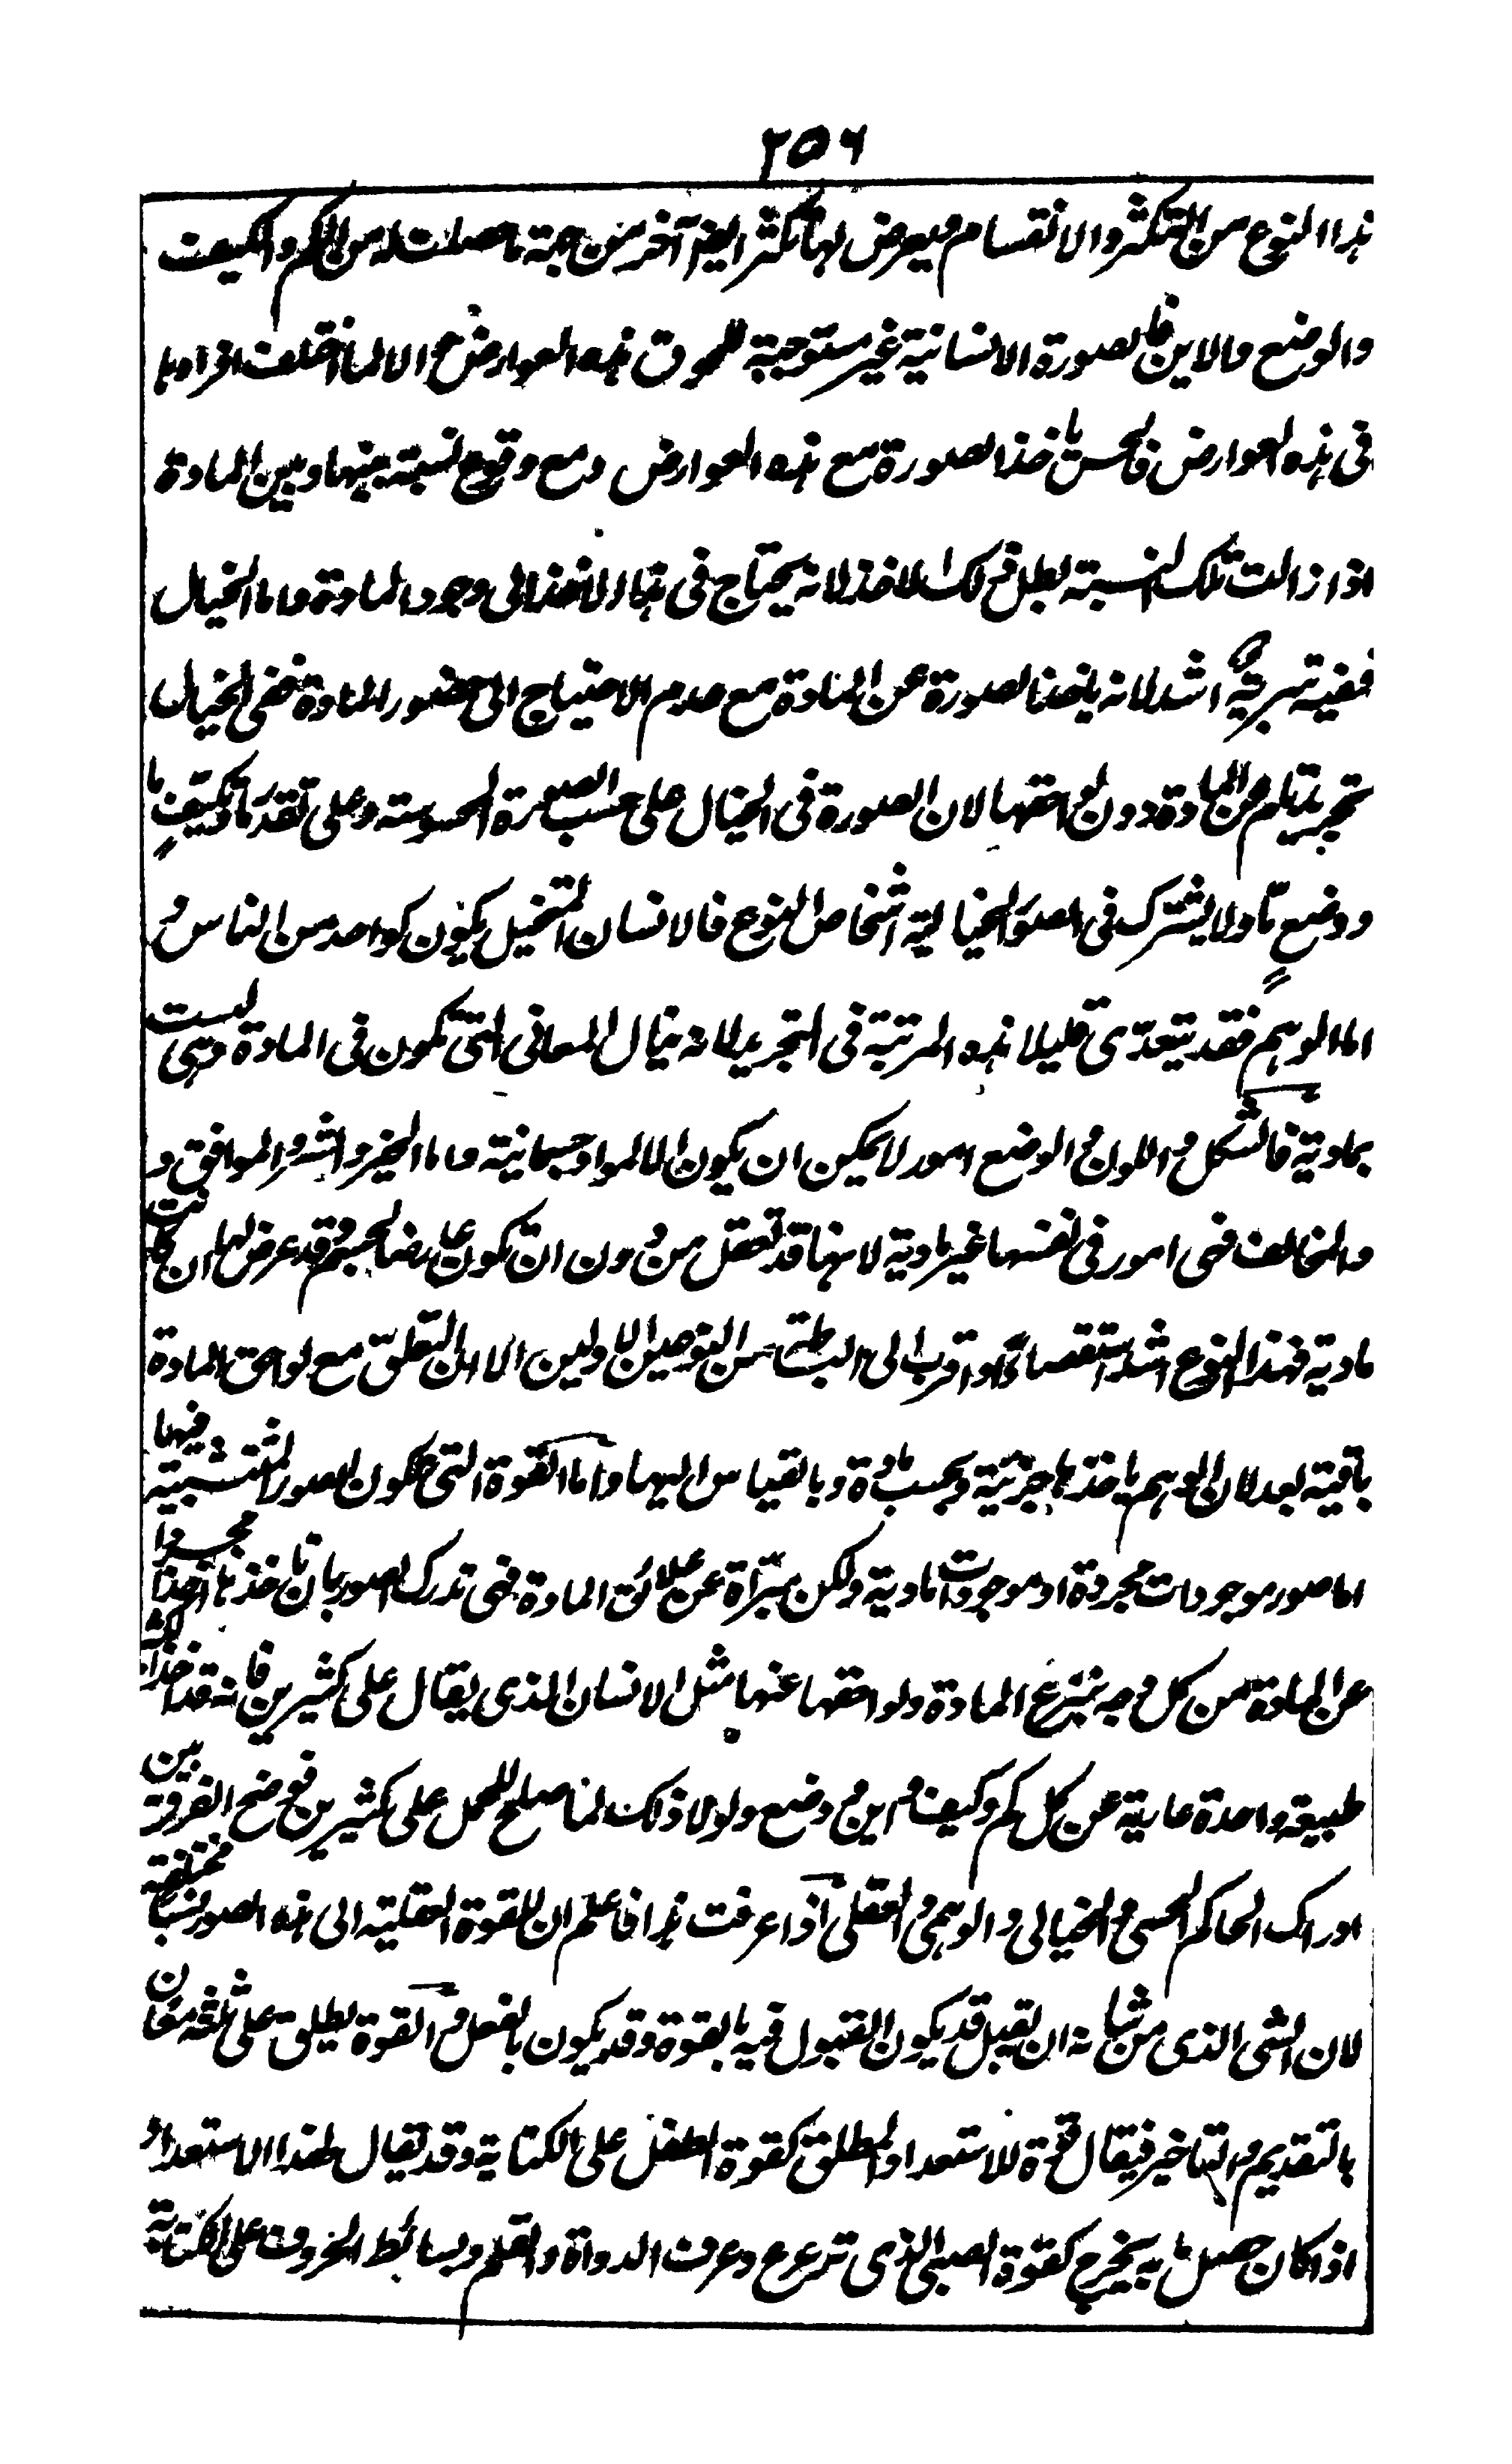 ٢٥٦
هذا النوع من التكثر والانقسام فيعرض لها تكثر ايضا آخر من جهة ما حصلت له من الكم والكيف
والوضع والاين فالصورة الانسانية غير مستوجبة للحوق هذه العوارض والا لما اختلف افرادها
فى هذه العوارض فالحس ياخذ الصورة مع هذه العوارض ومع وقوع نسبة بينها وبين المادة
اذا زالت تلك النسبة بطل ذلك الاخذ لانه يحتاج فى هذا الاخذ الى وجود المادة واما الخيال
ففيه تبرية اشد لانه ياخذ الصورة عن المادة مع عدم الاحتياج الى حضور المادة ففى الخيال
تجريد تام عن المادة دون لواحقها لان الصورة فى الخيال على حسب الصورة المحسوسة وعلى تقدر ما وتكيف ما
ووضع ما ولا يشترك فى الصور الخيالية اشخاص النوع فالانسان المتخيل يكون كواحد من الناس و
اما الوهم فقد يتعدى قليلا هذه المرتبة فى التجريد لانه ينال المعانى التى تكون فى المادة وهى ليست
بمادية فالشكل واللون والوضع امور لا يمكن ان يكون الا لمواد جسمانية واما الخير والشر والموافق و
المخالف فهى امور فى نفسها غير مادية لانها قد تعقل من دون ان تكون عارضا لجسم وقد عرض لها ان كانت
مادية فهذا النوع اشد استقصاء واقرب الى البساطة من النوعين الاولين الا ان التعلق مع لواحق المادة
باقية بعد لان الوهم ياخذها جزئية وبحسب مادة وبالقياس اليها واما القوة التى تكون الصور المتشبثة فيها
اما صور موجودات مجردة او موجودات مادية ولكن مبرّاة عن علائق المادة فهى تدرك الصور بان تاخذها اخذا مجردا
عن المادة من كل وجه بنزع المادة ولواحقها عنها مثل الانسان الذى يقال على كثيرين فانه قد اخذ الكثير
طبيعة واحدة عارية عن كل كم وكيف واين ووضع ولولا ذلك لما صلح للحمل على كثيرين فوضح الفرقة بين
ادراك الحاكم الحسى والخيالى والوهمى والعقلى اذا عرفت هذا فاعلم ان للقوة العقلية الى هذه الصور نسبا مختلفة
لان الشى الذى من شانه ان يقبل قد يكون القبول فيه بالقوة وقد يكون بالفعل والقوة يطلق على ثلثة معان
بالتقديم والتاخير فيقال قوة للاستعداد المطلق كقوة الطفل على الكتابة وقد يقال لهذا الاستعداد
اذا كان حصل ما به يخرج كقوة الصبى الذى ترعرع وعرف الدواة والقلم وبسائط الحروف على الكتابة